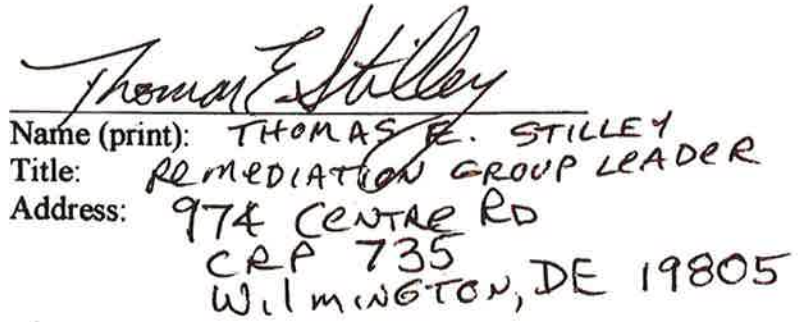 Thomas E. Stilley
Name (print): THOMAS E. STILLEY
Title: REMEDIATION GROUP LEADER
Address: 974 CENTRE RD
CRP 735
WILMINGTON, DE 19805